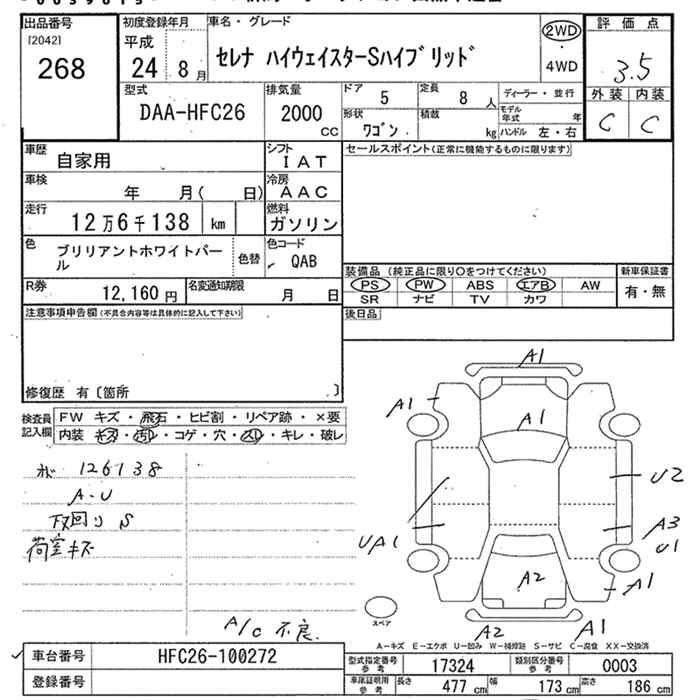 出品番号
[2042]
268
初度登録年月
平成
24 8 月
車名・グレード
セレナ ハイウェイスターSハイブリッド
2WD
・
4WD
評価点
3.5
外装 内装
C C
型式
DAA-HFC26
排気量
2000
CC
ドア 5
定員 8 人
形状 ワゴン
積載 kg
ディーラー・並行
モデル年式 年
ハンドル 左・右
車歴 自家用
シフト IAT
車検 年 月( 日)
冷房 AAC
走行 12万6千138 km
燃料 ガソリン
色 ブリリアントホワイトパール
色替
色コード QAB
R券 12,160 円
名変通知期限 月 日
セールスポイント(正常に機能するものに限ります)
装備品 (純正品に限り○をつけてください)
新車保証書
PS PW ABS エアB AW
SR ナビ TV カワ
有・無
後日品
注意事項申告欄(不具合内容等は具体的に記入して下さい)
修復歴 有〔箇所 〕
検査員記入欄
FW キズ・飛石・ヒビ割・リペア跡・×要
内装 キズ・汚れ・コゲ・穴・スレ・キレ・破レ
126138
A-U
下回り S
荷室キズ
A/C 不良
A1
A1
A1
U2
UA1
A3
U1
A1
A2
A2
A1
スペア
A-キズ E-エクボ U-凹み W-補修跡 S-サビ C-腐食 XX-交換済
車台番号 HFC26-100272
登録番号
型式指定番号 参考 17324
類別区分番号 参考 0003
車庫証明用 参考 長さ 477 cm 幅 173 cm 高さ 186 cm